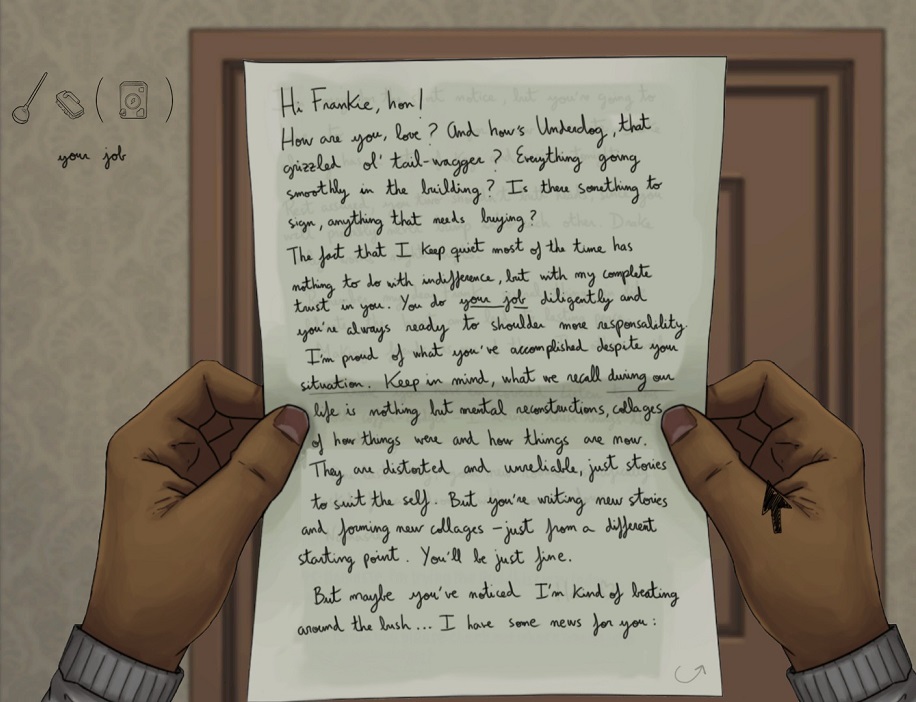 your job
Hi Frankie, hon!
How are you, love? And how's Underdog, that
grizzled ol' tail-wagger? Everything going
smoothly in the building? Is there something to
sign, anything that needs buying?
The fact that I keep quiet most of the time has
nothing to do with indifference, but with my complete
trust in you. You do your job diligently and
you're always ready to shoulder more responsability.
I'm proud of what you've accomplished despite your
situation. Keep in mind, what we recall during our
life is nothing but mental reconstructions, collages
of how things were and how things are now.
They are distorted and unreliable, just stories
to suit the self. But you're writing new stories
and forming new collages – just from a different
starting point. You'll be just fine.
But maybe you've noticed I'm kind of beating
around the bush... I have some news for you: